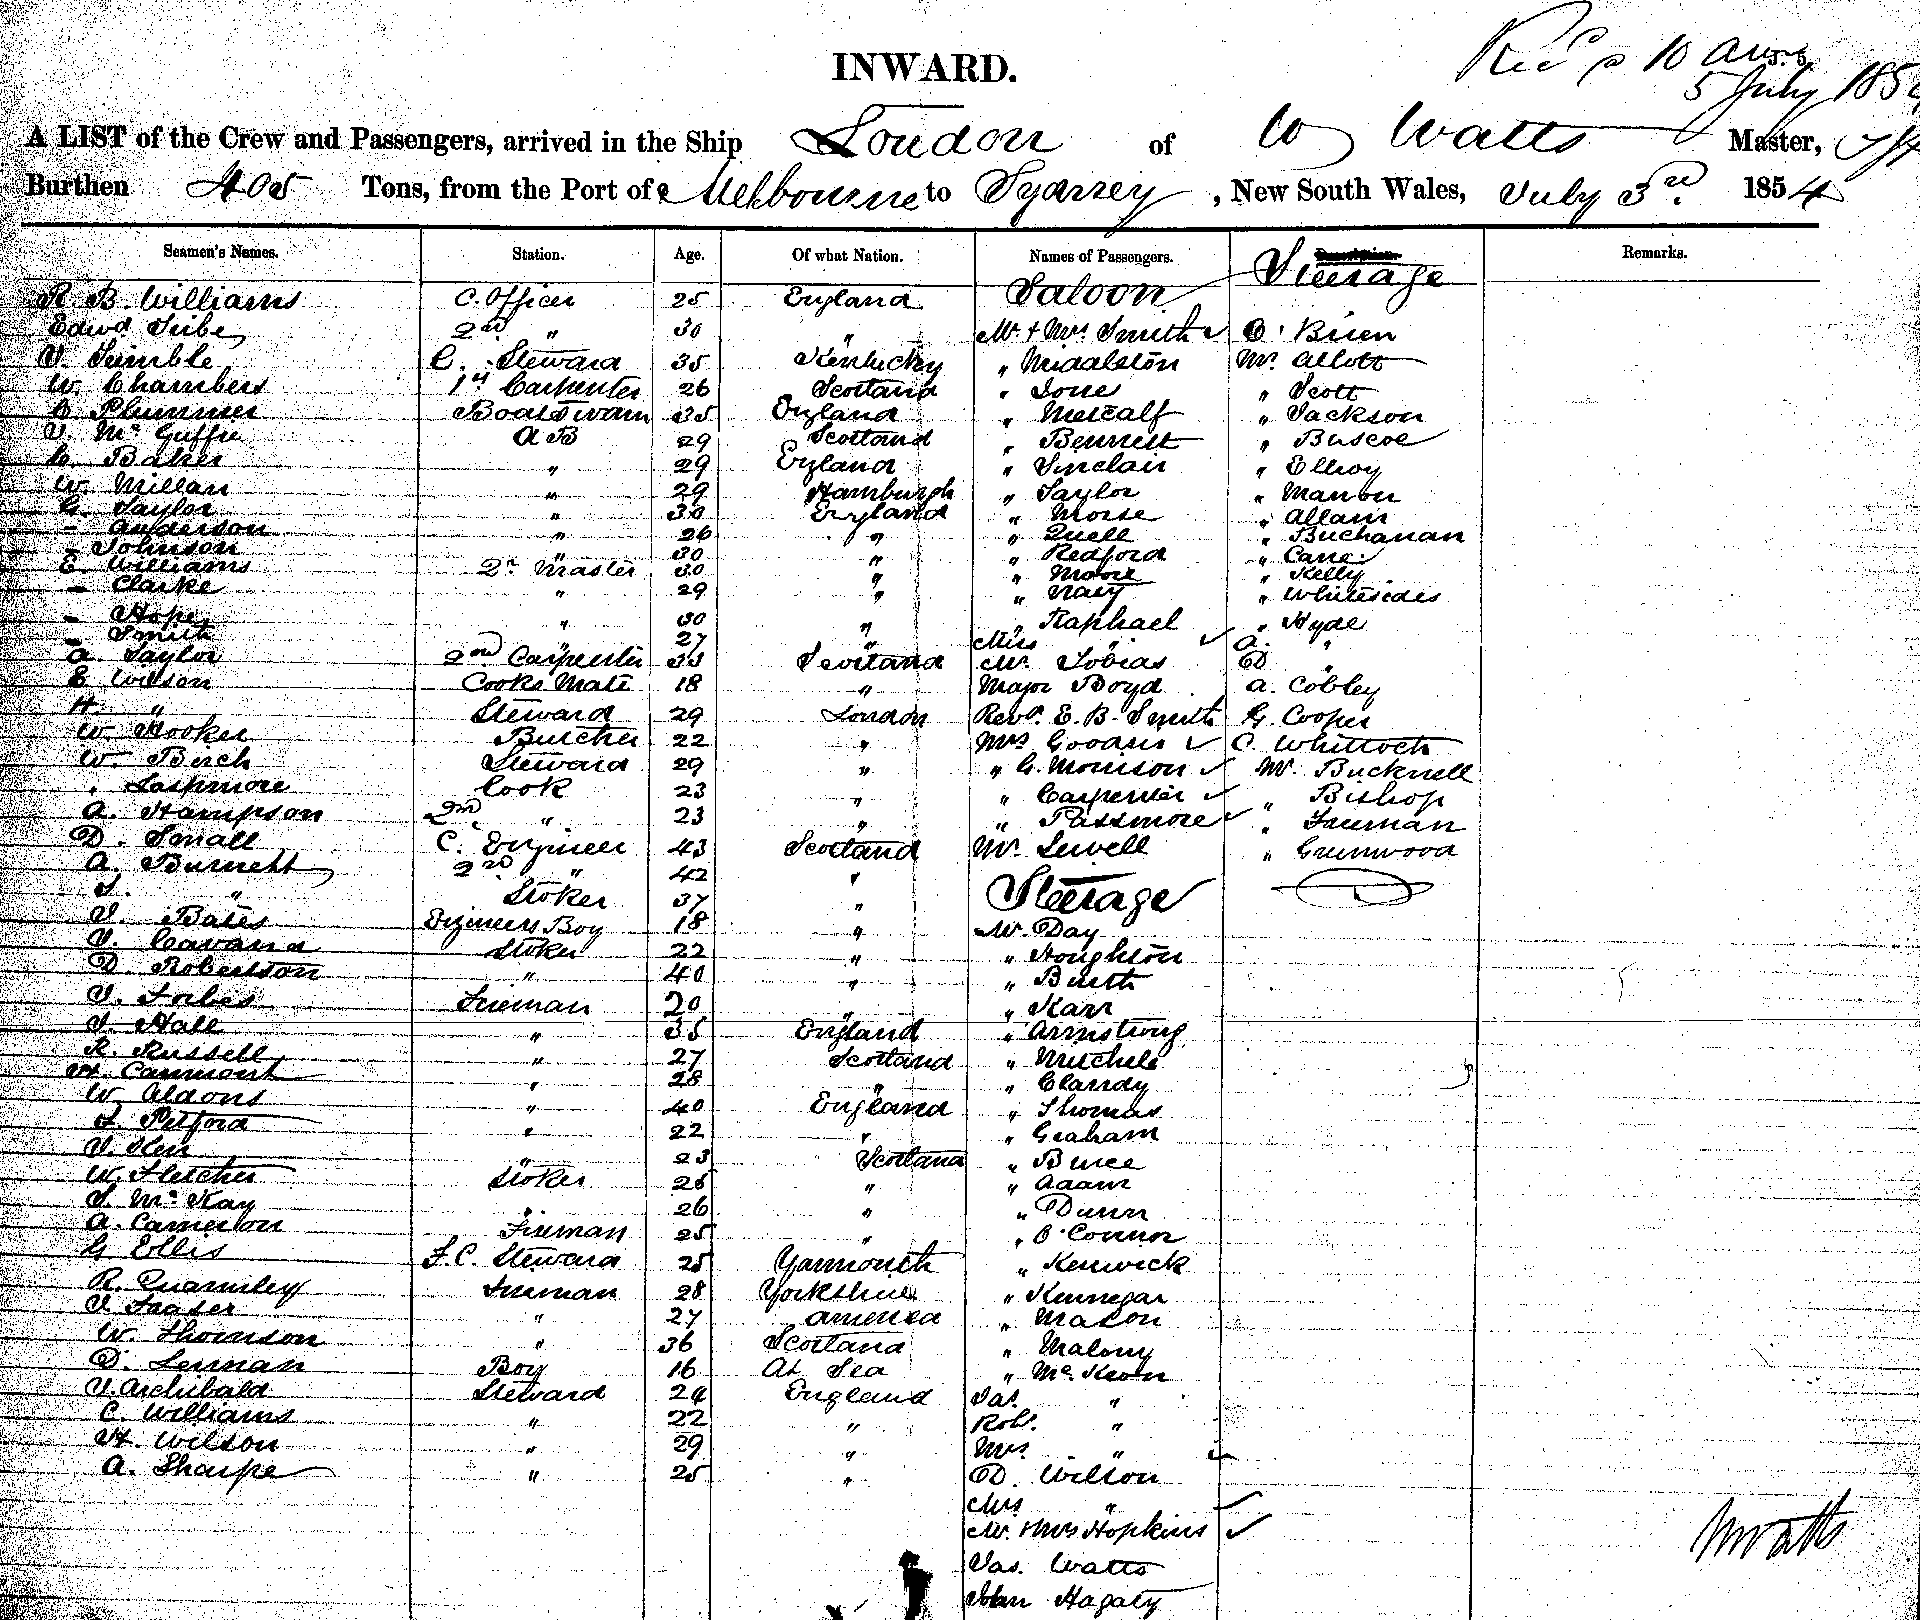 INWARD.
Rec'd 10 am
5 July 185
A LIST of the Crew and Passengers, arrived in the Ship London of W Watts Master,
Burthen 405 Tons, from the Port of Melbourne to Sydney, New South Wales, July 3rd 1854
Seamen's Names. Station. Age. Of what Nation. Names of Passengers. Steerage Remarks.
R. B. Williams C. Officer 25 England Saloon
Edwd 2nd " 30 " Mr. & Mrs Smith O'Brien
Trimble C. Steward 35 Kentucky " Middleton Mr. Abbott
W. Chambers 1st Carpenter 26 Scotland " Scott
Plummer Boatswain 35 England " Metcalf " Jackson
J. McGuffie A B 29 Scotland " Bennett " Buscoe
Baker " 29 England " Sinclair " Elroy
W. Millan " 29 Hamburgh " Taylor "
G. Taylor " 30 England " Morse " Allan
- Anderson " 26 " " Quell " Buchanan
- Johnson " 30 " " Redford " Cane
E Williams 2nd Master 30 " " Moore " Kelly
- Clarke " 29 " " " Whitesides
- Hope " 30 " " Raphael " Hyde
- Smith 27 " Miss " A. "
A. Taylor 2nd Carpenter 33 Scotland Mr. Tobias D "
E Wilson Cooks Mate 18 " Major Boyd A. Cobley
H. " Steward 29 London Revd. E. B. Smith G. Cooper
W. Hooker Butcher 22 " Mrs C. Whittock
W. Birch Steward 29 " " G. Morrison Mr. Bucknell
" Lashmore Cook 23 " " Carpenter " Bishop
A. Hampson 2nd " 23 " " Passmore " Freeman
D. Small C. Engineer 43 Scotland Mr. Sewell " Greenwood
A. Burnett 2nd " 42 " Steerage
" Stoker 37 "
J. Bates Engineers Boy 18 " Mr. Day
J. Cavana Stoker 22 " " Houghton
D. Robertson " 40 " "
J. Forbes Fireman 20 " " Karr
Hall " 35 England " Armstrong
R. Russell " 27 Scotland " Mitchele
H. " 28 " " Clandy
W. Aldons " 40 England " Thomas
Pitford " 22 " " Graham
J. Kerr " 23 Scotland " Bruce
W. Fletcher Stoker 26 " " Adam
McKay " 26 " " Dunn
A. Cameron Fireman 25 " " O'Connor
G Ellis F. C. Steward 25 Yarmouth " Kenwick
R. Quarmley Fireman 28 Yorkshire " Kennegar
J. Fraser " 27 America " Mason
W. Thomson " 36 Scotland " Malony
D. Boy 16 At Sea " McKeon
J. Archibald Steward 24 England Jas. "
C. Williams " 22 " Robt. "
H. Wilson " 29 " Mrs "
A. Sharpe " 25 " D. Wilson
Mrs "
Mr. & Mrs Hopkins
Jas. Watts
Hagaty
W Watts